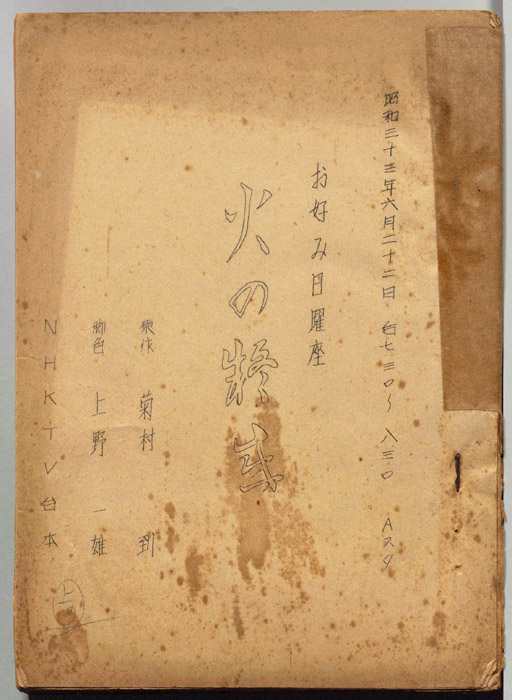 昭和三十三年六月二十二日 后七三〇〜八三〇 Aスタ
お好み日曜座
火の疑惑
原作 菊村 到
脚色 上野 一雄
NHKTV台本